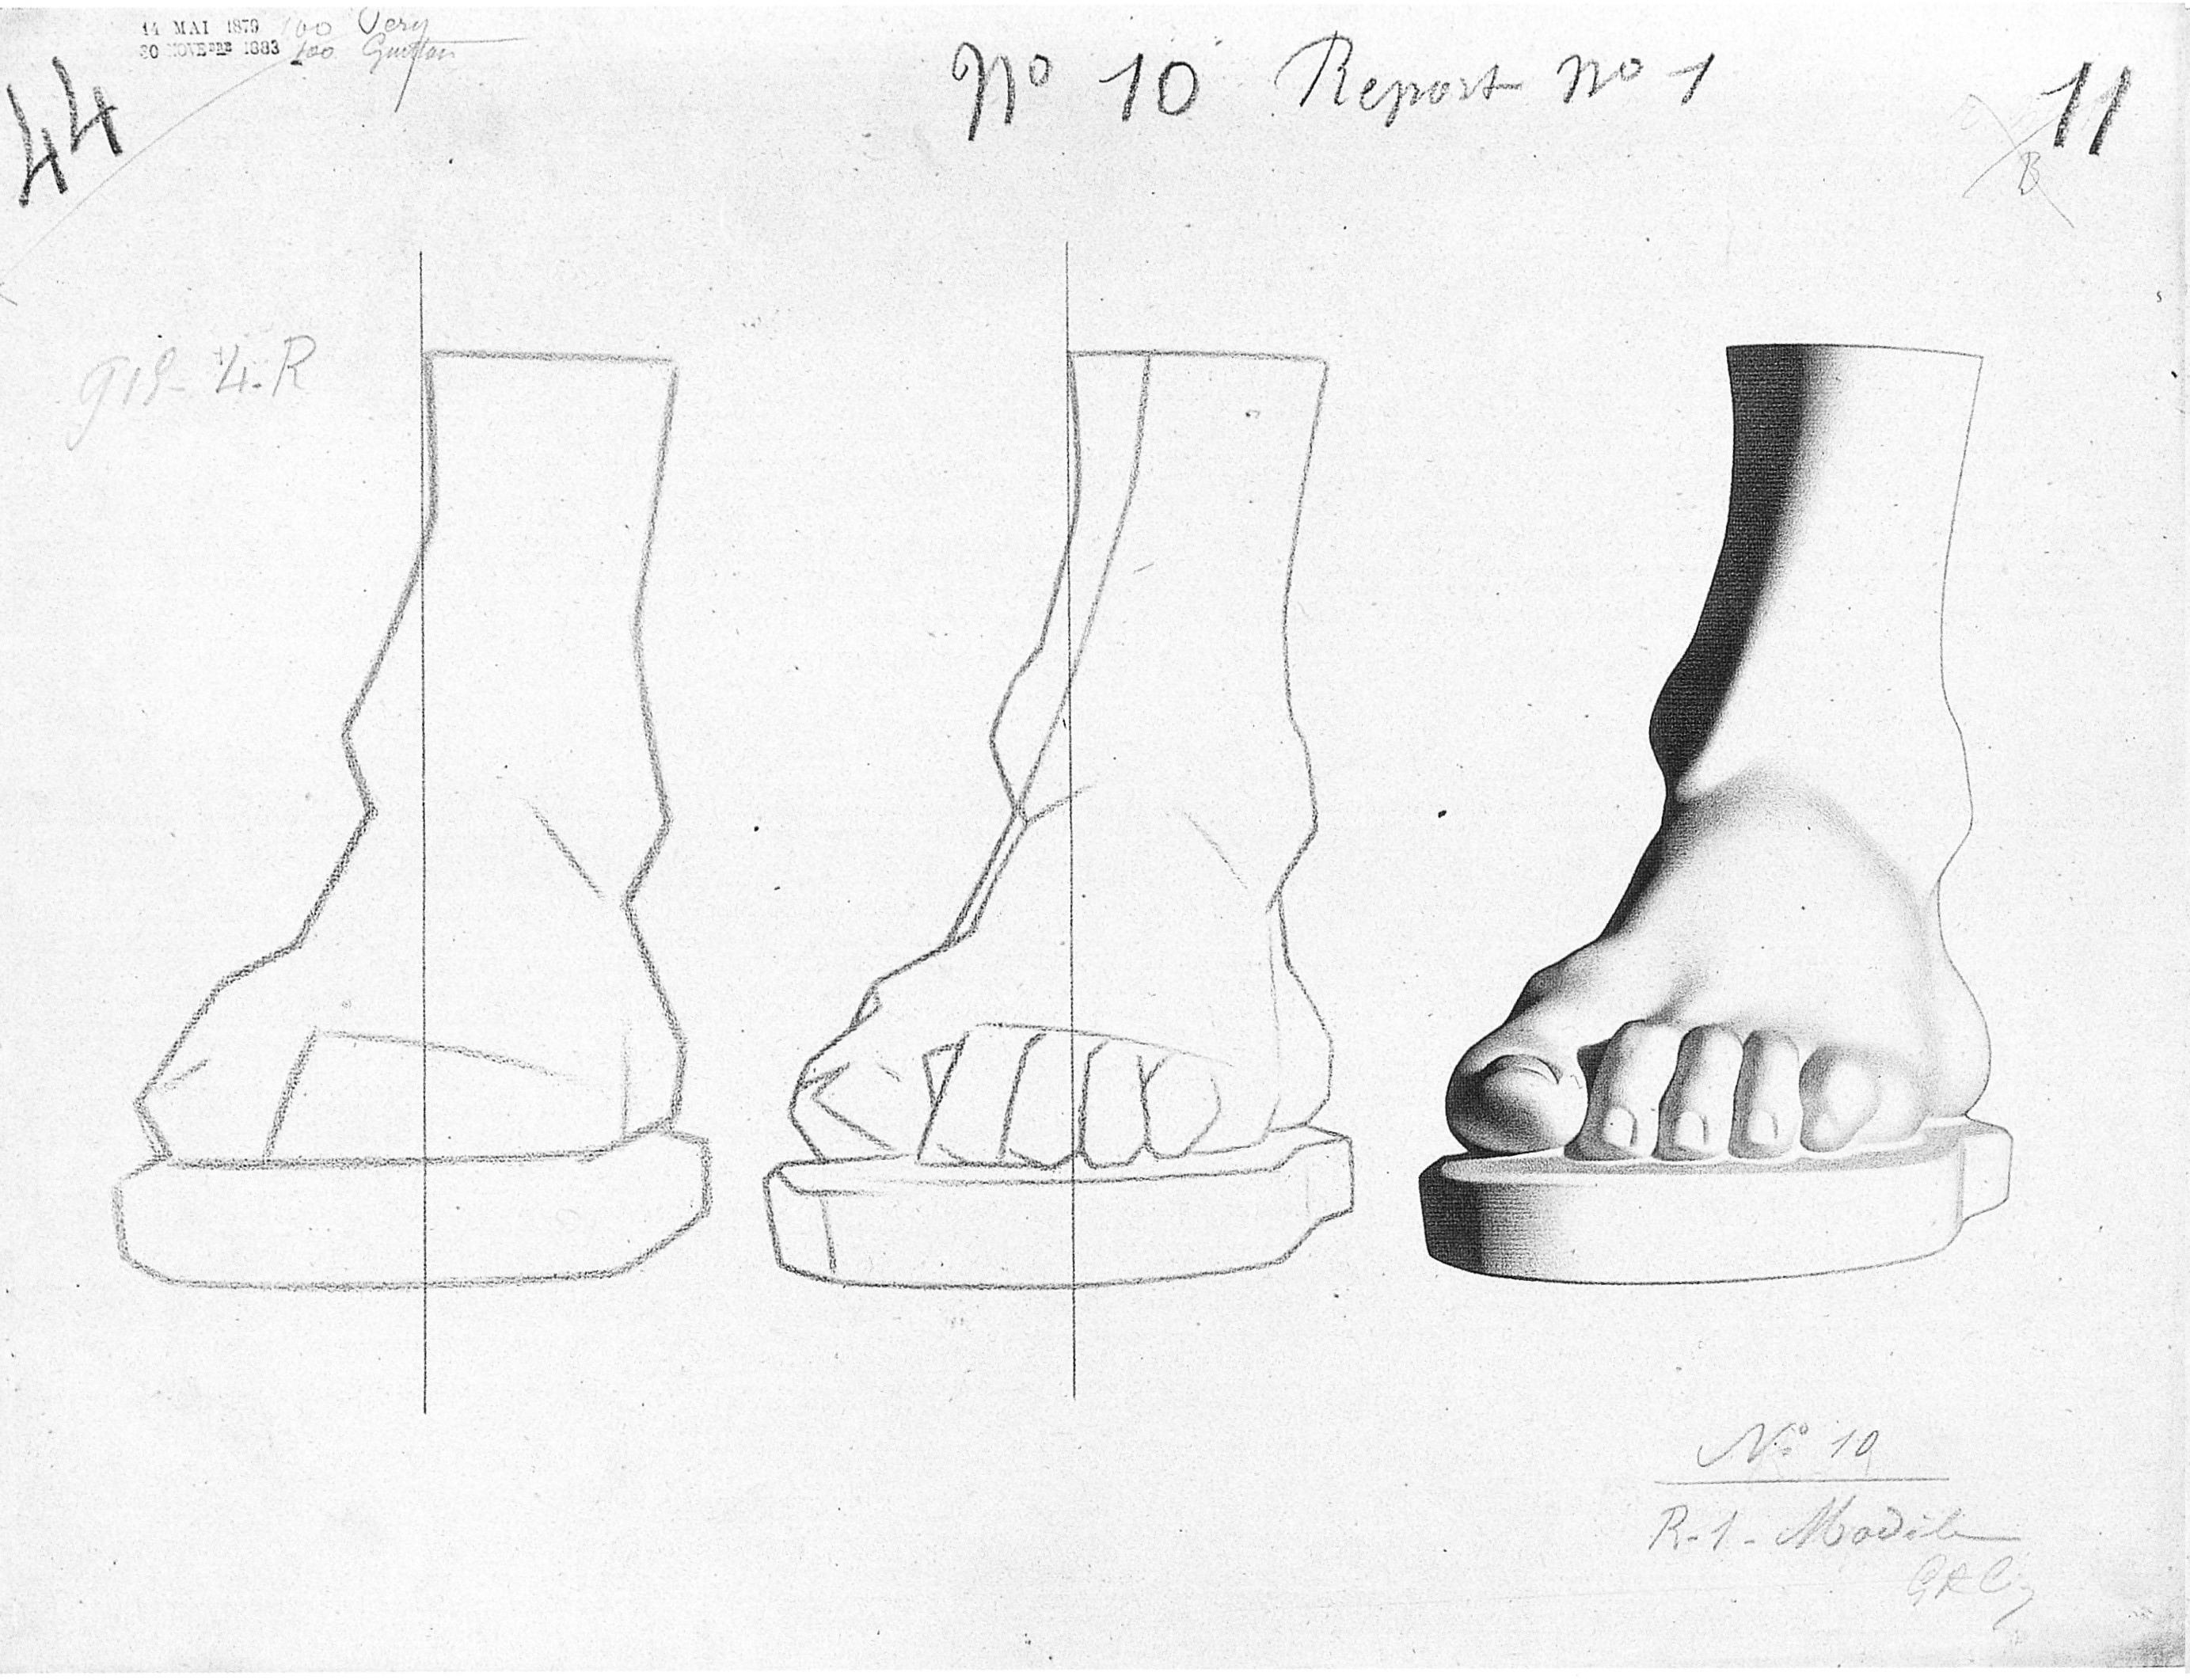 14 MAI 1879 100 Very
30 NOVEBRE 1883 100
44
No 10 Report no 1
11
B
4.R
No 10
R-1-Modèle